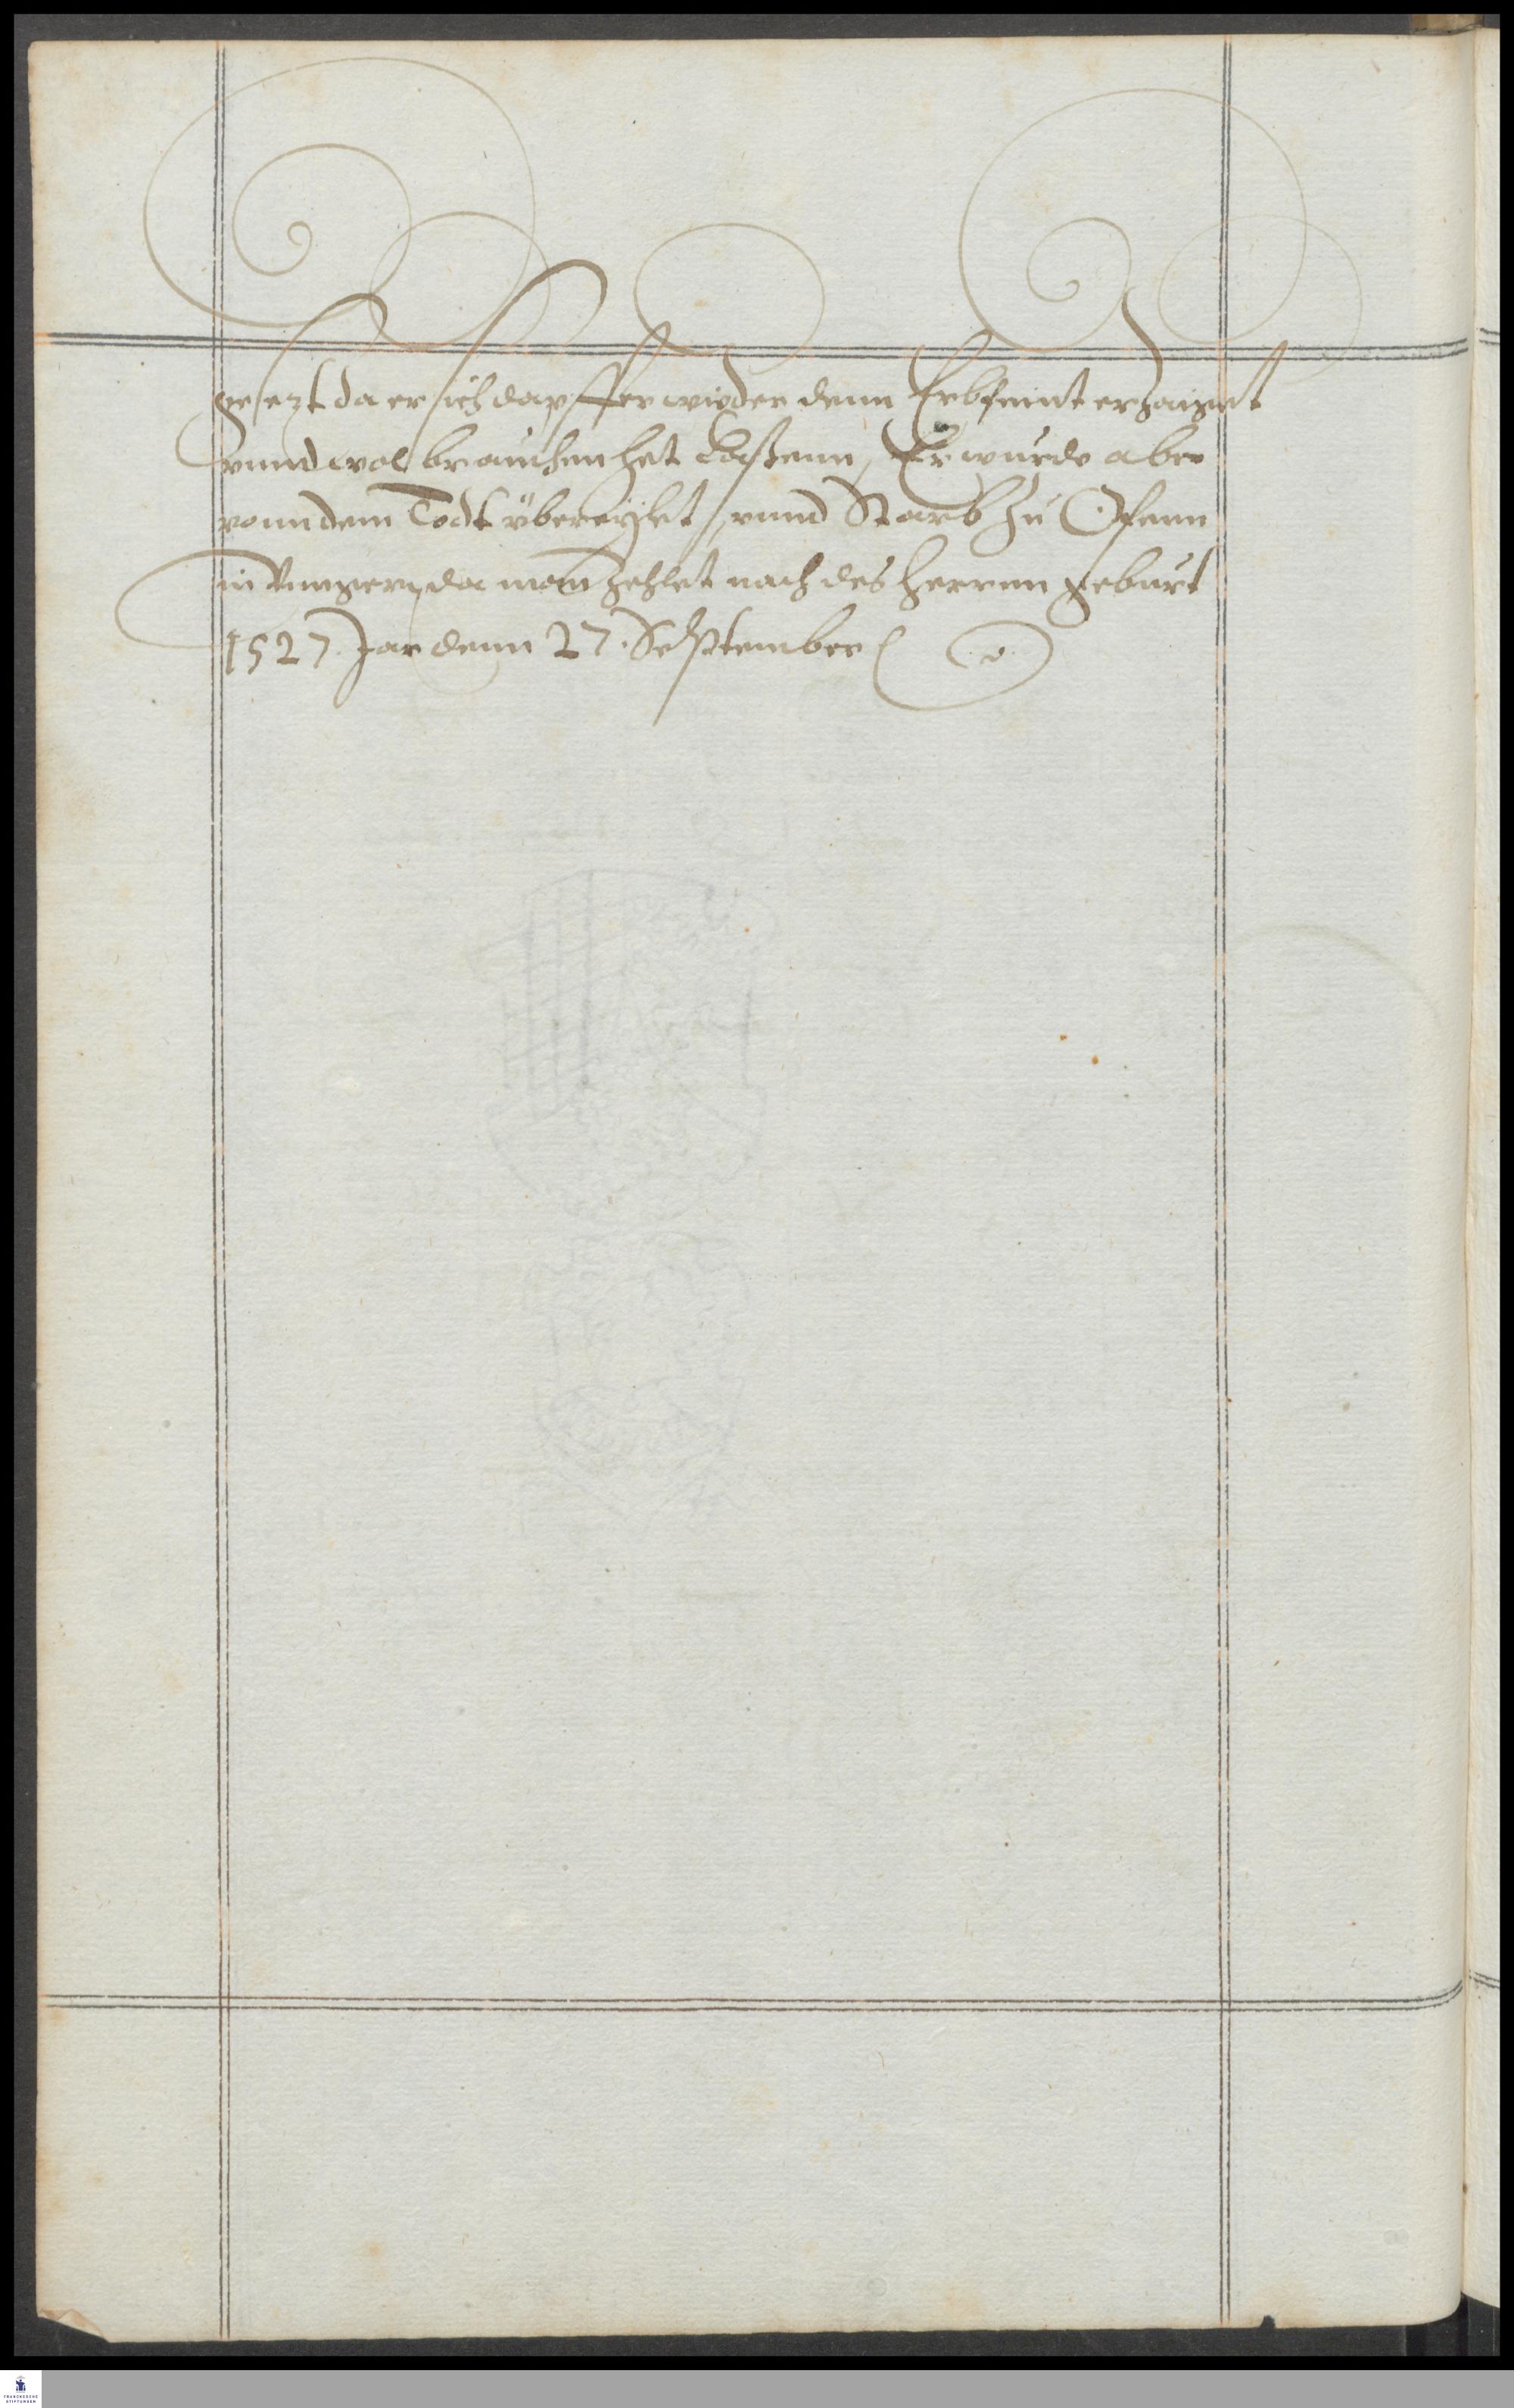 gesezt da er sich dapffer wieder denn Erbfeint erzaigt
vnnd wol brauchen het Laßenn, Er wurde aber
vonn dem Todt übereylet, vnnd Starb zu Ofenn
in Vnngern, da man zehlet nach des Herrnn geburt
1527. Jar denn 27. September
FRANCKESCHE
STIFTUNGEN